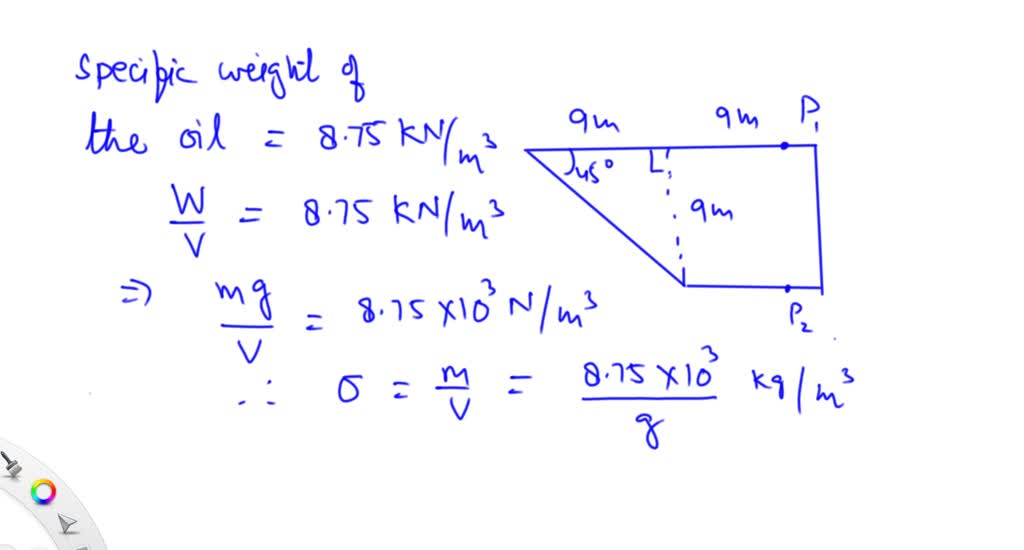 Specific weight of
the oil = 8.75 KN/m³
W/V = 8.75 KN/m³
⇒ mg/V = 8.75 × 10³ N/m³
∴ σ = m/V = 8.75 × 10³/g kg/m³
9m 9m P₁
45°
9m
P₂